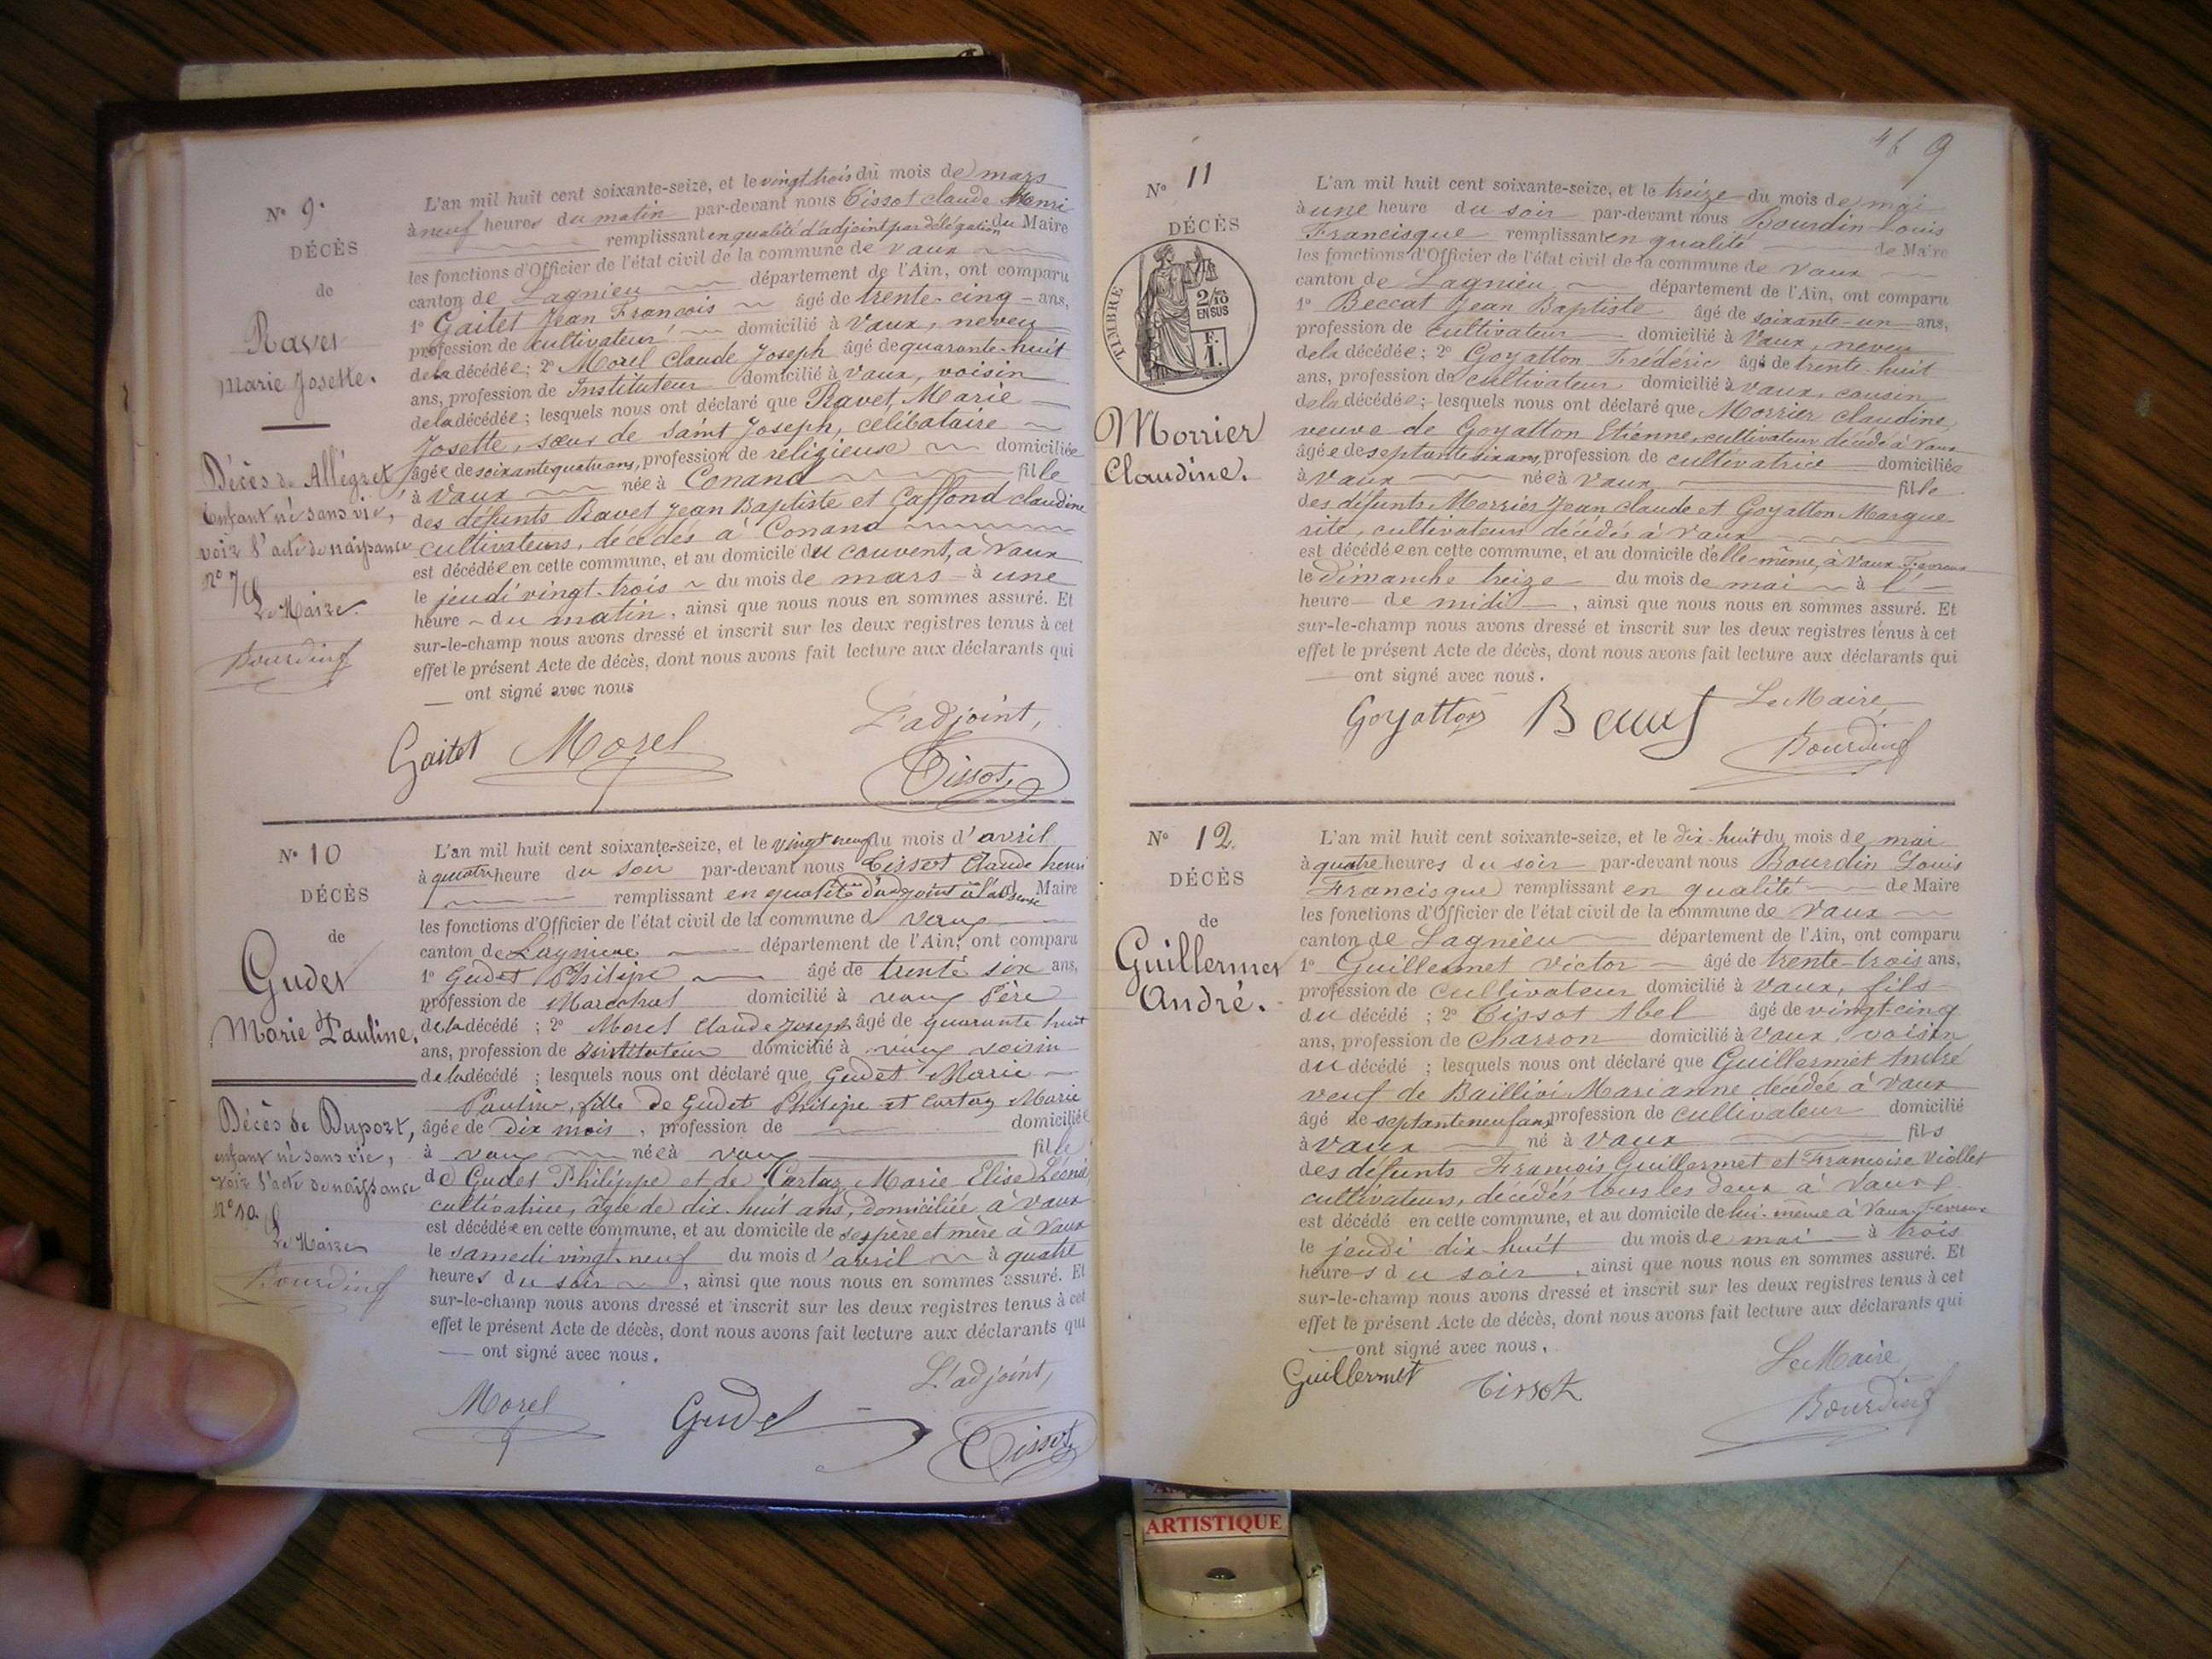 N° 9.
DÉCÈS
de
Ravet
Marie Josette.
Décès de Allégret
Enfant né sans vie,
voir l'acte de naissance
n° 7
Le Maire.
Bourdin
L'an mil huit cent soixante-seize, et le vingt trois du mois de mars
à neuf heures du matin par-devant nous Tissot claude henri
remplissant en qualité d'adjoint par délégation du Maire
les fonctions d'Officier de l'état civil de la commune de Vaux
canton de Lagnieu département de l'Ain, ont comparu
1° Gaitet Jean François âgé de trente-cinq ans,
profession de cultivateur domicilié à Vaux, neveu
de la décédée ; 2° Morel Claude Joseph âgé de quarante-huit
ans, profession de Instituteur domicilié à Vaux, voisin
de la décédée ; lesquels nous ont déclaré que Ravet, Marie
Josette, sœur de Saint Joseph, célibataire
âgée de soixante quatre ans, profession de religieuse domiciliée
à Vaux née à Conand fille
des défunts Ravet Jean Baptiste et Gaffond claudine
cultivateurs, décédés à Conand
est décédée en cette commune, et au domicile du couvent, à Vaux
le jeudi vingt-trois du mois de mars à une
heure du matin, ainsi que nous nous en sommes assuré. Et
sur-le-champ nous avons dressé et inscrit sur les deux registres tenus à cet
effet le présent Acte de décès, dont nous avons fait lecture aux déclarants qui
ont signé avec nous
L'adjoint,
Gaitet Morel Tissot
N° 10
DÉCÈS
de
Gudet
Marie Pauline.
Décès de Duport,
enfant né sans vie,
voir l'acte de naissance
n° 10
Le Maire
Bourdin
L'an mil huit cent soixante-seize, et le vingt neuf du mois d'avril
à quatre heure du soir par-devant nous Tissot Claude henri
remplissant en qualité d'adjoint à l'absence du Maire
les fonctions d'Officier de l'état civil de la commune d vaux
canton de Lagnieu département de l'Ain, ont comparu
1° Gudet Philipe âgé de trente six ans,
profession de Marechal domicilié à vaux Père
de la décédé ; 2° Morel Claude Joseph âgé de quarante huit
ans, profession de instituteur domicilié à vaux voisin
de la décédé ; lesquels nous ont déclaré que Gudet Marie
Pauline, fille de Gudet Philipe et Cartaz Marie
âgée de dix mois, profession de domiciliée
à vaux née à vaux fille
de Gudet Philippe et de Cartaz Marie Elise Léonie
cultivatrice, âgée de dix-huit ans, domiciliée à Vaux
est décédée en cette commune, et au domicile de ses père et mère à Vaux
le samedi vingt-neuf du mois d'avril à quatre
heures du soir, ainsi que nous nous en sommes assuré. Et
sur-le-champ nous avons dressé et inscrit sur les deux registres tenus à cet
effet le présent Acte de décès, dont nous avons fait lecture aux déclarants qui
ont signé avec nous.
L'adjoint,
Morel Gudet Tissot
46 9
N° 11
DÉCÈS
TIMBRE
2/10
EN SUS
F.
1.
Morrier
Claudine.
L'an mil huit cent soixante-seize, et le treize du mois de mai
à une heure du soir par-devant nous Bourdin Louis
Francisque remplissant en qualité de Maire
les fonctions d'Officier de l'état civil de la commune de Vaux
canton de Lagnieu département de l'Ain, ont comparu
1° Beccat Jean Baptiste âgé de soixante-un ans,
profession de cultivateur domicilié à Vaux, neveu
de la décédée ; 2° Goyatton Frédéric âgé de trente-huit
ans, profession de cultivateur domicilié à Vaux, cousin
de la décédée ; lesquels nous ont déclaré que Morrier claudine,
veuve de Goyatton Etienne, cultivateur décédé à Vaux
âgée de septante six ans, profession de cultivatrice domiciliée
à Vaux née à Vaux fille
des défunts Morrier Jean claude et Goyatton Margue
rite, cultivateurs décédés à Vaux
est décédée en cette commune, et au domicile d'elle-même, à Vaux-Fevroux
le dimanche treize du mois de mai à l'
heure de midi, ainsi que nous nous en sommes assuré. Et
sur-le-champ nous avons dressé et inscrit sur les deux registres tenus à cet
effet le présent Acte de décès, dont nous avons fait lecture aux déclarants qui
ont signé avec nous.
Le Maire,
Goyatton Bourdin
N° 12.
DÉCÈS
de
Guillermet
André.
L'an mil huit cent soixante-seize, et le dix-huit du mois de mai
à quatre heures du soir par-devant nous Bourdin Louis
Francisque remplissant en qualité de Maire
les fonctions d'Officier de l'état civil de la commune de Vaux
canton de Lagnieu département de l'Ain, ont comparu
1° Guillermet Victor âgé de trente-trois ans,
profession de cultivateur domicilié à Vaux, fils
du décédé ; 2° Tissot Abel âgé de vingt-cinq
ans, profession de charron domicilié à Vaux, voisin
du décédé ; lesquels nous ont déclaré que Guillermet André
veuf de Baillivi Marianne décédée à Vaux
âgé de septante neuf ans, profession de cultivateur domicilié
à Vaux né à Vaux fils
des défunts François Guillermet et Françoise Viollet
cultivateurs, décédés tous les deux à Vaux
est décédé en cette commune, et au domicile de lui-même à Vaux-Fevroux
le jeudi dix-huit du mois de mai à trois
heures du soir, ainsi que nous nous en sommes assuré. Et
sur-le-champ nous avons dressé et inscrit sur les deux registres tenus à cet
effet le présent Acte de décès, dont nous avons fait lecture aux déclarants qui
ont signé avec nous.
Le Maire
Guillermet Tissot Bourdin
ARTISTIQUE